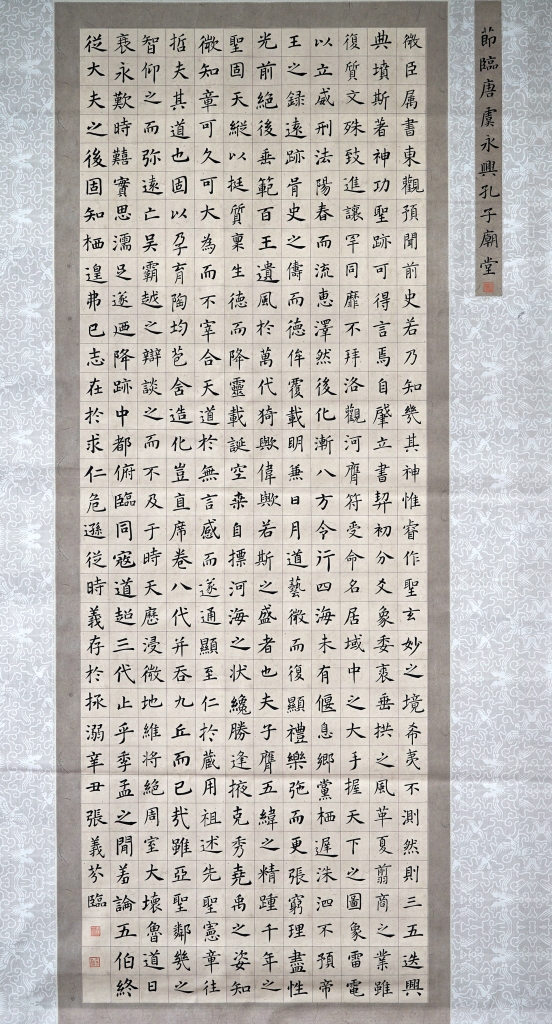 節臨唐虞永興孔子廟堂
微臣属書東觀預聞前史若乃知幾其神惟睿作聖玄妙之境希夷不測然則三五迭興
典墳斯著神功聖跡可得言焉自肇立書契初分爻象委裘垂拱之風革夏翦商之業雖
復質文殊致進讓罕同靡不拜洛觀河膺符受命名居域中之大手握天下之圖象雷電
以立威刑法陽春而流惠澤然後化漸八方令行四海未有偃息鄉黨栖遲洙泗不預帝
王之録遠跡胥史之儔而德侔覆載明兼日月道藝微而復顯禮樂弛而更張窮理盡性
光前絕後垂範百王遺風於萬代猗歟偉歟若斯之盛者也夫子膺五緯之精踵千年之
聖固天縱以挺質稟生德而降靈載誕空桒自摽河海之状纔勝逢掖克秀堯禹之姿知
微知章可久可大為而不宰合天道於無言感而遂通顯至仁於藏用祖述先聖憲章往
哲夫其道也固以孕育陶均苞含造化豈直席卷八代并吞九丘而已哉雖亞聖鄰幾之
智仰之而弥遠亡吴霸越之辯談之而不及于時天歷浸微地維將絕周室大壞魯道日
衰永歎時囏實思濡足遂迺降跡中都俯臨同寇道超三代止乎季孟之間羞論五伯終
從大夫之後固知栖遑弗已志在於求仁危遜從時義存於拯溺辛丑張義芬臨